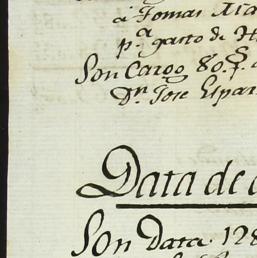 á Tomas
pª gasto de
Son Cargo 80.
Dn Jose Espar
Data de
Son Data 128